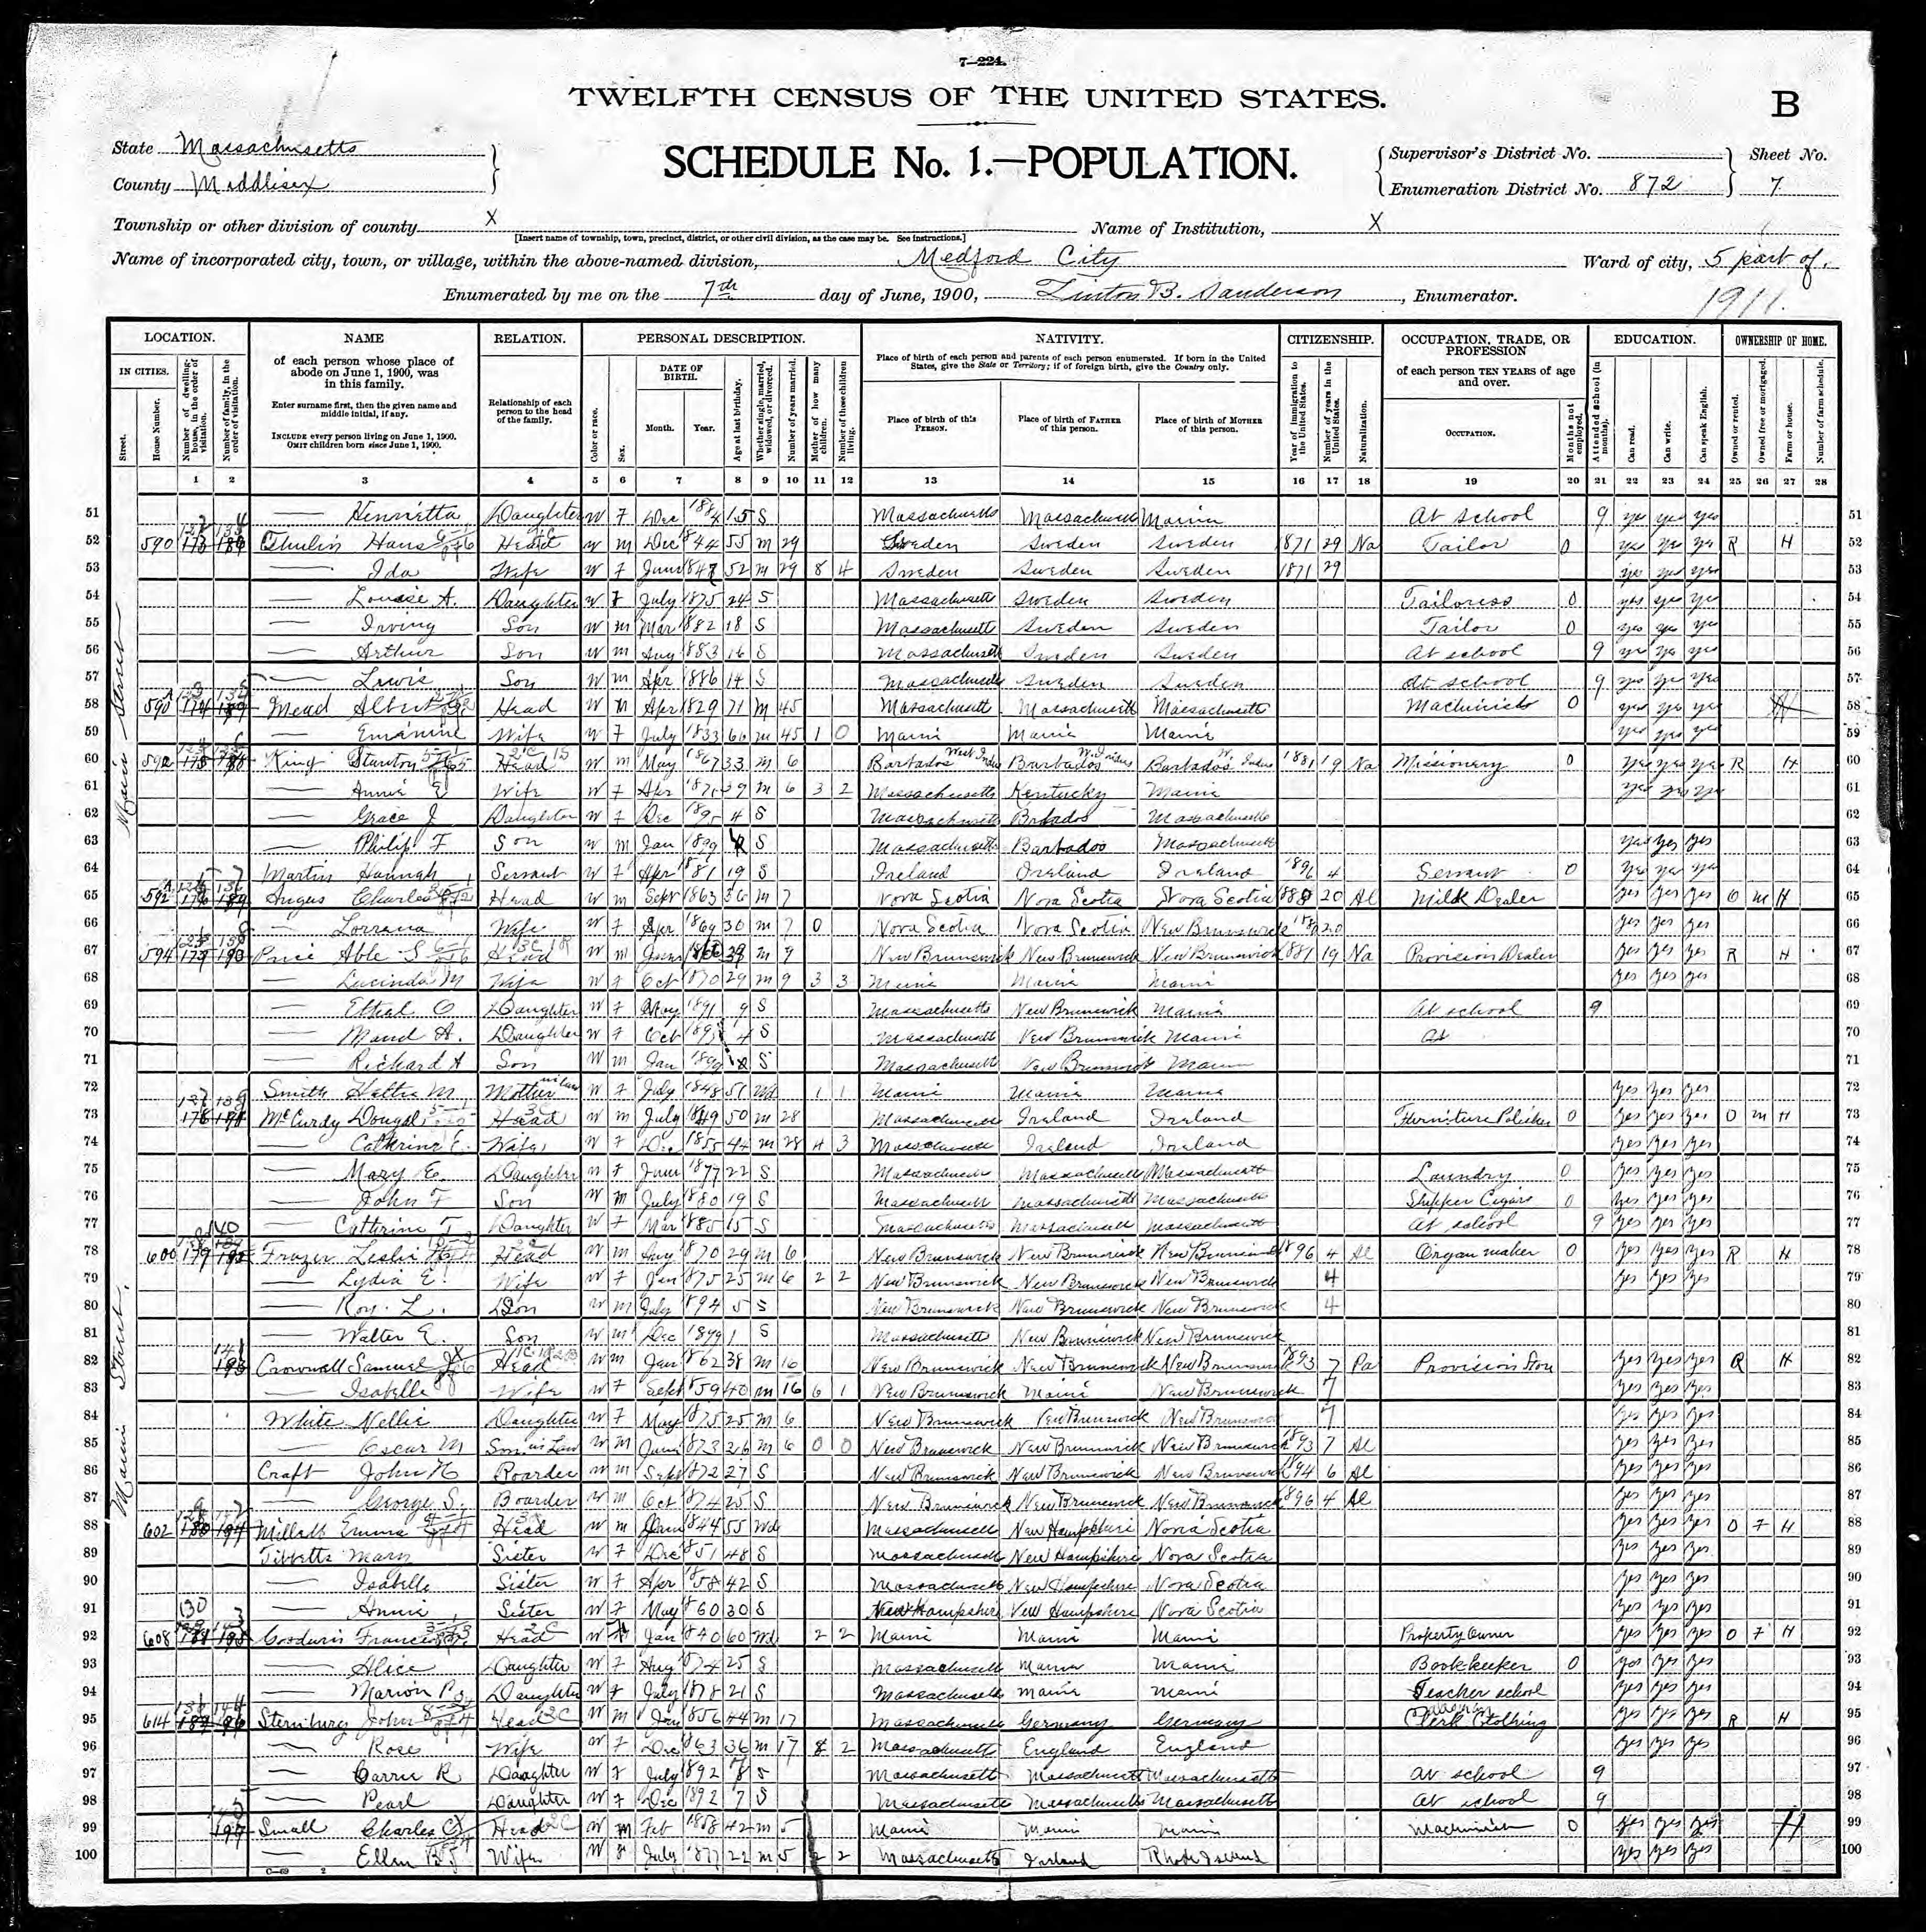 7-224.
TWELFTH CENSUS OF THE UNITED STATES.
B
State Massachusetts
County Middlesex
SCHEDULE No. 1.—POPULATION.
Supervisor's District No.
Enumeration District No. 872
Sheet No.
7
Township or other division of county X
[Insert name of township, town, precinct, district, or other civil division, as the case may be. See instructions.]
Name of Institution, X
Name of incorporated city, town, or village, within the above-named division, Medford City
Ward of city, 5 part of.
Enumerated by me on the 7th day of June, 1900, Linton B. Sanderson, Enumerator.
1911.
LOCATION. NAME RELATION. PERSONAL DESCRIPTION. NATIVITY. CITIZENSHIP. OCCUPATION, TRADE, OR PROFESSION EDUCATION. OWNERSHIP OF HOME.
IN CITIES.
Street.
House Number.
Number of dwelling-house, in the order of visitation.
Number of family, in the order of visitation.
of each person whose place of abode on June 1, 1900, was in this family.
Enter surname first, then the given name and middle initial, if any.
INCLUDE every person living on June 1, 1900.
OMIT children born since June 1, 1900.
Relationship of each person to the head of the family.
Color or race.
Sex.
DATE OF BIRTH.
Month. Year.
Age at last birthday.
Whether single, married, widowed, or divorced.
Number of years married.
Mother of how many children.
Number of these children living.
Place of birth of each person and parents of each person enumerated. If born in the United States, give the State or Territory; if of foreign birth, give the Country only.
Place of birth of this PERSON.
Place of birth of FATHER of this person.
Place of birth of MOTHER of this person.
Year of immigration to the United States.
Number of years in the United States.
Naturalization.
of each person TEN YEARS of age and over.
OCCUPATION.
Months not employed.
Attended school (in months).
Can read.
Can write.
Can speak English.
Owned or rented.
Owned free or mortgaged.
Farm or house.
Number of farm schedule.
1 2 3 4 5 6 7 8 9 10 11 12 13 14 15 16 17 18 19 20 21 22 23 24 25 26 27 28
Main Street
51 Henrietta Daughter W F Dec 1884 15 S Massachusetts Massachusetts Maine At school 9 yes yes yes 51
52 590 Hans Head W M Dec 1844 55 M 29 Sweden Sweden Sweden 1871 29 Na Tailor 0 yes yes yes R H 52
53 Ida Wife W F June 52 M 29 8 4 Sweden Sweden Sweden 1871 29 yes yes yes 53
54 Louise A. Daughter W F July 1875 24 S Massachusetts Sweden Sweden Tailoress 0 yes yes yes 54
55 Irving Son W M Mar 1882 18 S Massachusetts Sweden Sweden Tailor 0 yes yes yes 55
56 Arthur Son W M Aug 1883 16 S Massachusetts Sweden Sweden At school 9 yes yes yes 56
57 Lewis Son W M Apr 1886 14 S Massachusetts Sweden Sweden At school 9 yes yes yes 57
58 590 A Mead Albert Head W M Apr 1829 71 M 45 Massachusetts Massachusetts Massachusetts Machinist 0 yes yes yes H 58
59 Wife W F July 1833 66 M 45 1 0 Maine Maine Maine yes yes yes 59
60 592 King Stanton Head W M May 1867 33 M 6 Barbados West Indies Barbados W. Indies Barbados W. Indies 1881 19 Na Missionery 0 yes yes yes R H 60
61 Annie E Wife W F Apr M 6 3 2 Massachusetts Kentucky Maine yes yes yes 61
62 Grace J Daughter W F Dec 1895 4 S Massachusetts Barbados Massachusetts 62
63 Philip F Son W M Jan 1899 S Massachusetts Barbados Massachusetts yes yes yes 63
64 Martin Hannah Servant W F Apr 1881 19 S Ireland Ireland Ireland 1896 4 Servant 0 yes yes yes 64
65 592 A Angus Charles Head W M Sept 1863 36 M 7 Nova Scotia Nova Scotia Nova Scotia 20 Al Milk Dealer yes yes yes O M H 65
66 Wife W F Apr 1869 30 M 7 0 Nova Scotia Nova Scotia New Brunswick 20 yes yes yes 66
67 594 Price Able S Head W M M 9 New Brunswick New Brunswick New Brunswick 1881 19 Na Provision Dealer yes yes yes R H 67
68 Lucinda M Wife W F Oct 1870 29 M 9 3 3 Maine Maine Maine yes yes yes 68
69 Ethel O Daughter W F May 1891 9 S Massachusetts New Brunswick Maine At school 9 69
70 Maud A. Daughter W F Oct 4 S Massachusetts New Brunswick Maine At 70
71 Richard A Son W M Jan 1899 S Massachusetts New Brunswick Maine 71
72 Smith Hattie M Mother in law W F July 1848 51 Wd 1 1 Maine Maine Maine yes yes yes 72
73 McCurdy Dougal Head W M July 1849 50 M 28 Massachusetts Ireland Ireland Furniture Polisher 0 yes yes yes O M H 73
74 Cathrine E. Wife W F Dec 1855 44 M 28 4 3 Massachusetts Ireland Ireland yes yes yes 74
75 Mary E. Daughter W F June 1877 22 S Massachusetts Massachusetts Massachusetts Laundry 0 yes yes yes 75
76 John F Son W M July 1880 19 S Massachusetts Massachusetts Massachusetts Shipper Cigars 0 yes yes yes 76
77 Cathrine T Daughter W F Mar 1885 15 S Massachusetts Massachusetts Massachusetts At school 9 yes yes yes 77
78 600 Frazer Leslie Head W M Aug 1870 29 M 6 New Brunswick New Brunswick New Brunswick 1896 4 Al Organ maker 0 yes yes yes R H 78
79 Lydia E. Wife W F Jan 1875 25 M 6 2 2 New Brunswick New Brunswick New Brunswick 4 yes yes yes 79
80 Roy. L. Son W M July 1894 5 S New Brunswick New Brunswick New Brunswick 4 80
81 Walter E. Son W M Dec 1899 1 S Massachusetts New Brunswick New Brunswick 81
82 Samuel Head W M Jan 1862 38 M 16 New Brunswick New Brunswick New Brunswick 1893 7 Pa Provision Store yes yes yes R H 82
83 Isabelle Wife W F Sept 1859 40 M 16 6 1 New Brunswick Maine New Brunswick 7 yes yes yes 83
84 White Nellie Daughter W F May 1875 25 M 6 New Brunswick New Brunswick New Brunswick 7 yes yes yes 84
85 Oscar M Son in Law W M June 1873 26 M 6 0 0 New Brunswick New Brunswick New Brunswick 1893 7 Al yes yes yes 85
86 Craft John H Boarder W M Sept 1872 27 S New Brunswick New Brunswick New Brunswick 1894 6 Al yes yes yes 86
87 George S. Boarder W M Oct 1874 25 S New Brunswick New Brunswick New Brunswick 1896 4 Al yes yes yes 87
88 602 Millett Emma Head W M 1844 55 Wd Massachusetts New Hampshire Nova Scotia yes yes yes O F H 88
89 Tibbetts Mary Sister W F Dec 1851 48 S Massachusetts New Hampshire Nova Scotia yes yes yes 89
90 Isabelle Sister W F Apr 1858 42 S Massachusetts New Hampshire Nova Scotia yes yes yes 90
91 Annie Sister W F May 1860 30 S New Hampshire New Hampshire Nova Scotia yes yes yes 91
92 608 Goodwin Frances Head W F Jan 1840 60 Wd 2 2 Maine Maine Maine Property Owner yes yes yes O F H 92
93 Alice Daughter W F Aug 1874 25 S Massachusetts Maine Maine Bookkeeper 0 yes yes yes 93
94 Marion P. Daughter W F July 1878 21 S Massachusetts Maine Maine Teacher school yes yes yes 94
95 614 Sternburg John Head W M Jan 1856 44 M 17 Massachusetts Germany Germany Clerk Clothing yes yes yes R H 95
96 Rose Wife W F Dec 1863 36 M 17 8 2 Massachusetts England England yes yes yes 96
97 Carrie R Daughter W F July 1892 S Massachusetts Massachusetts Massachusetts At school 9 97
98 Pearl Daughter W F Dec 1892 7 S Massachusetts Massachusetts Massachusetts At school 9 98
99 Small Charles Head W M Feb 1858 42 M 5 Maine Maine Maine Machinist 0 yes yes yes H 99
100 Ellen B Wife W F July 1877 22 M 5 2 2 Massachusetts Ireland Rhode Island yes yes yes 100
Main Street.